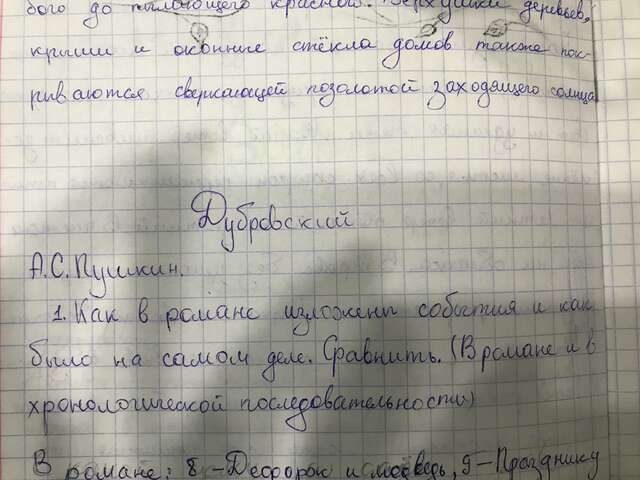 бого до пылающего красной. Верхушки деревьев,
крыши и оконные стёкла домов также пок-
рываются сверкающей позолотой заходящего солнца
Дубровский
А.С. Пушкин.
1. Как в романе изложены события и как
было на самом деле. Сравнить. (В романе и в
хронологической последовательности)
В романе: 8 - Дефорж и медведь, 9 - Празднику